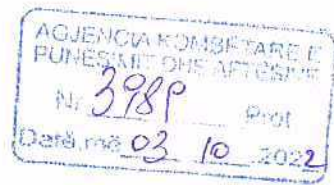 AGJENCIA KOMBËTARE E
PUNËSIMIT DHE AFTËSIVE
Nr. 3989 Prot
Datë, më 03 10 2022